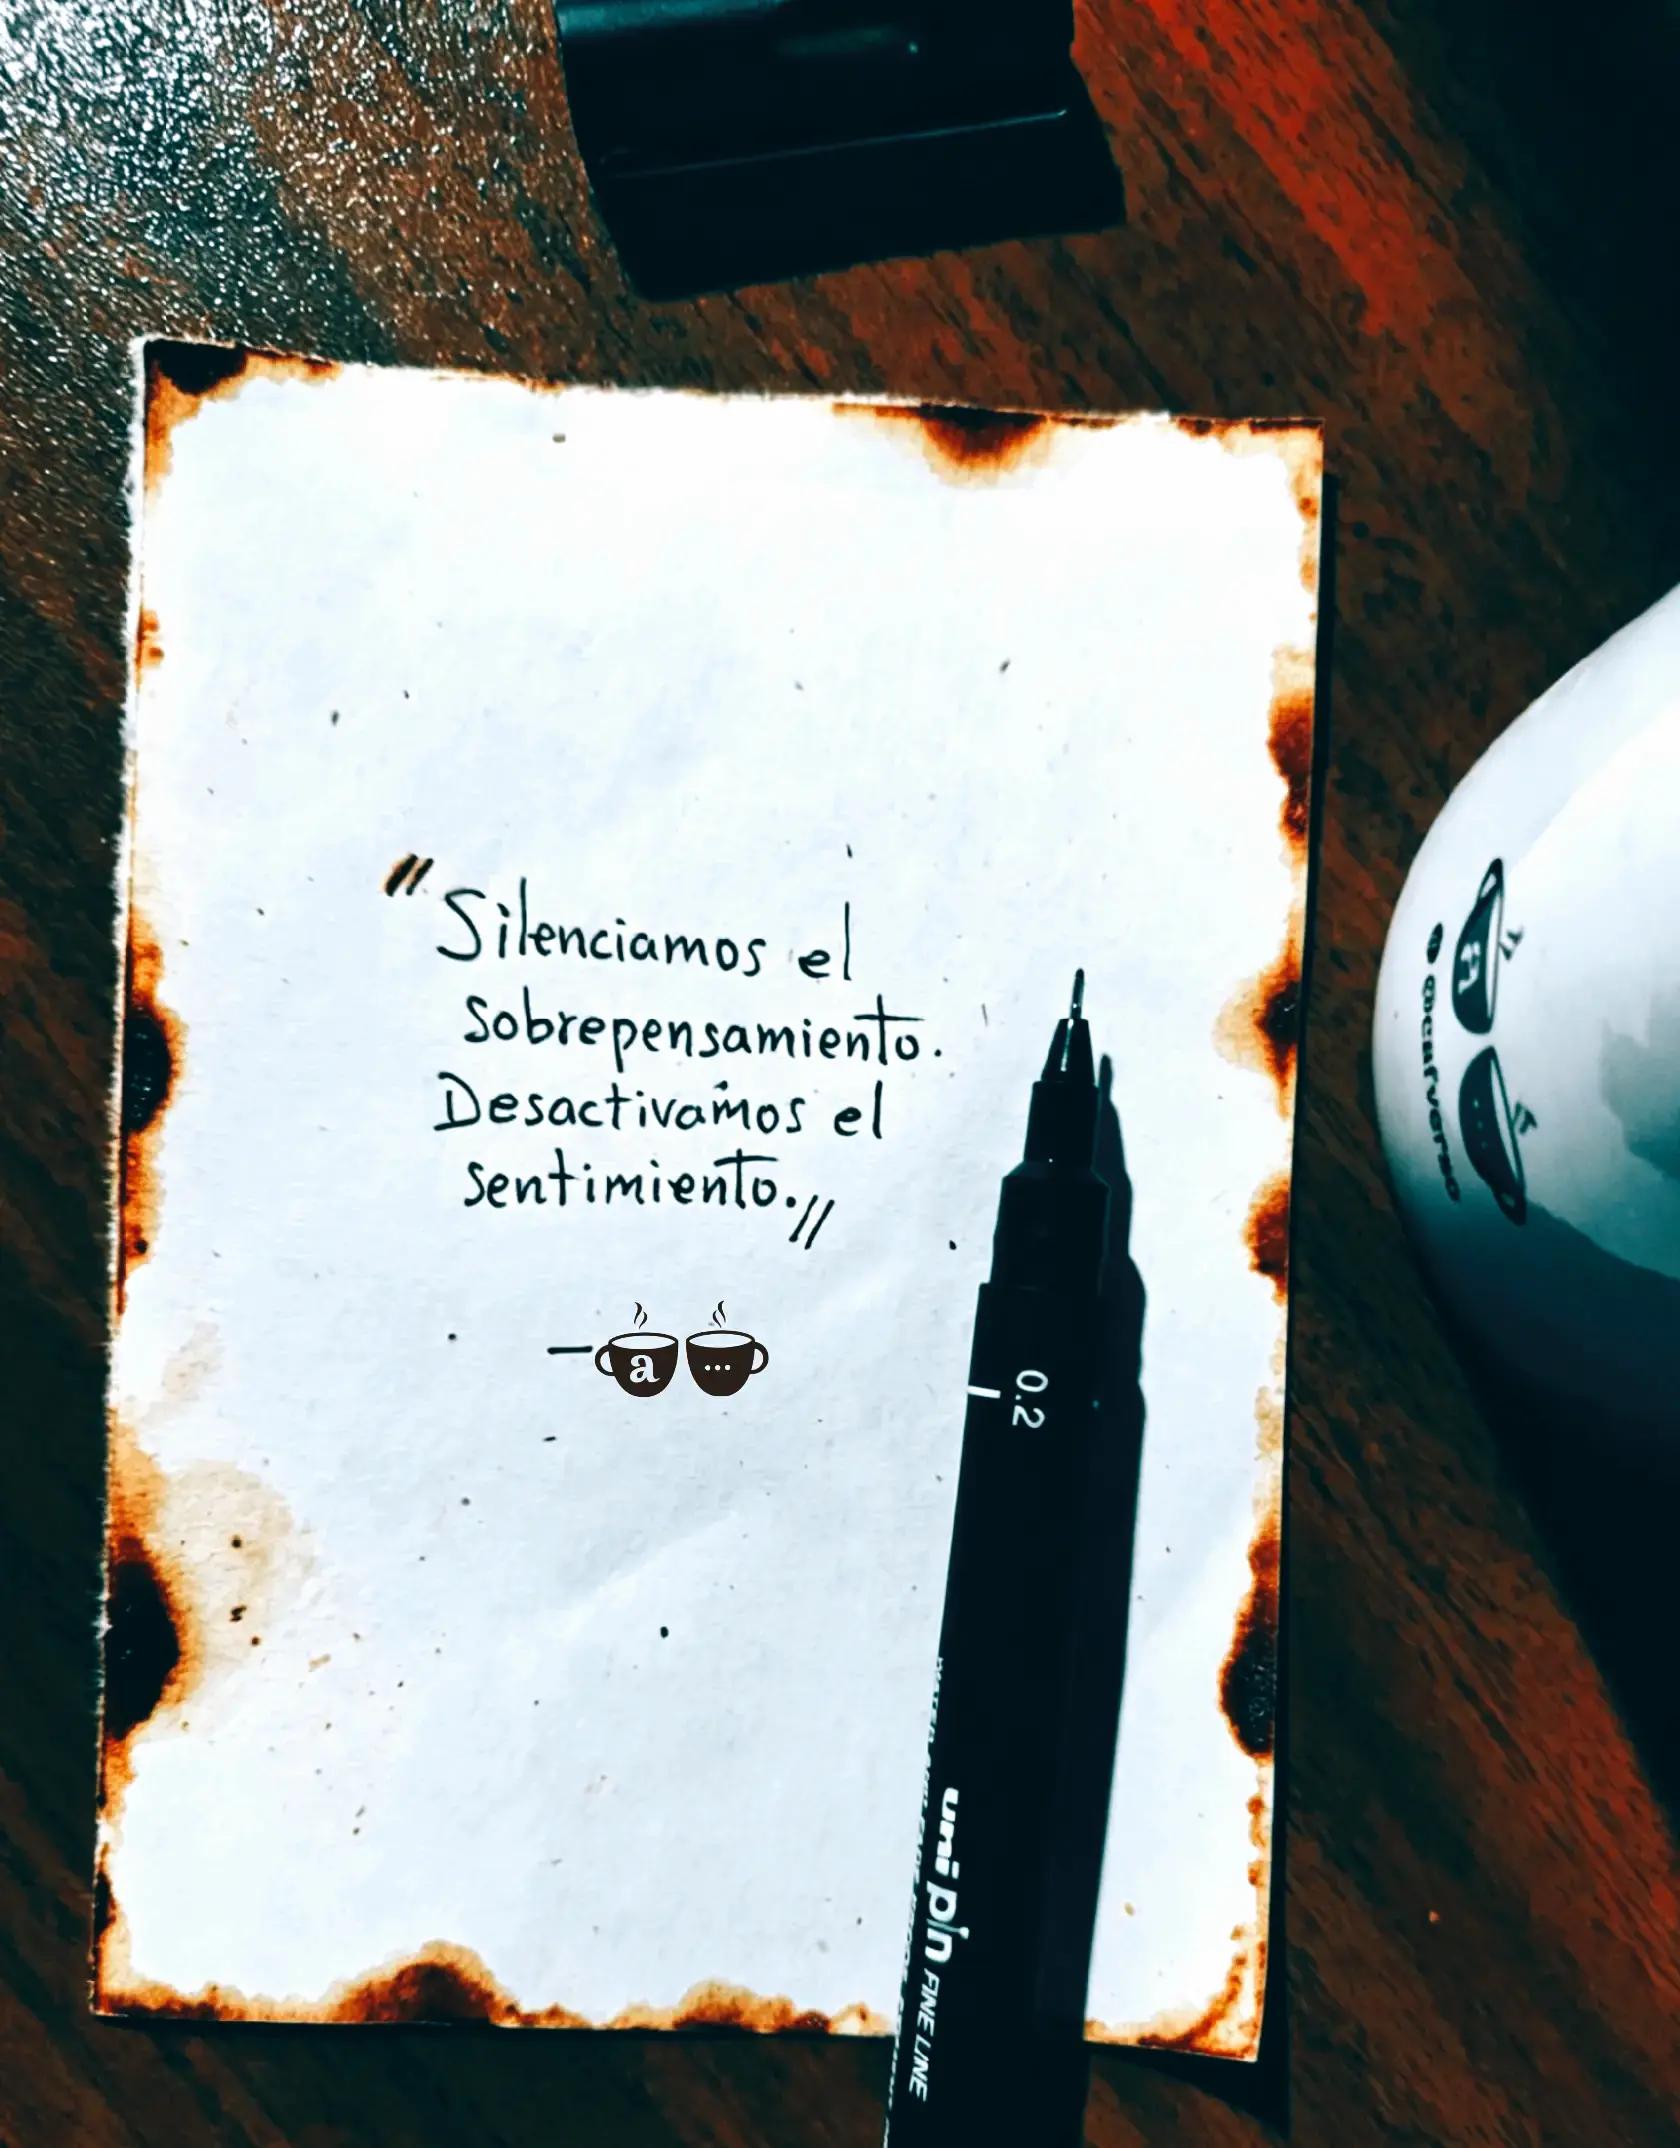 "Silenciamos el
sobrepensamiento.
Desactivamos el
sentimiento."
a ...
0.2
uni pin FINE LINE
a